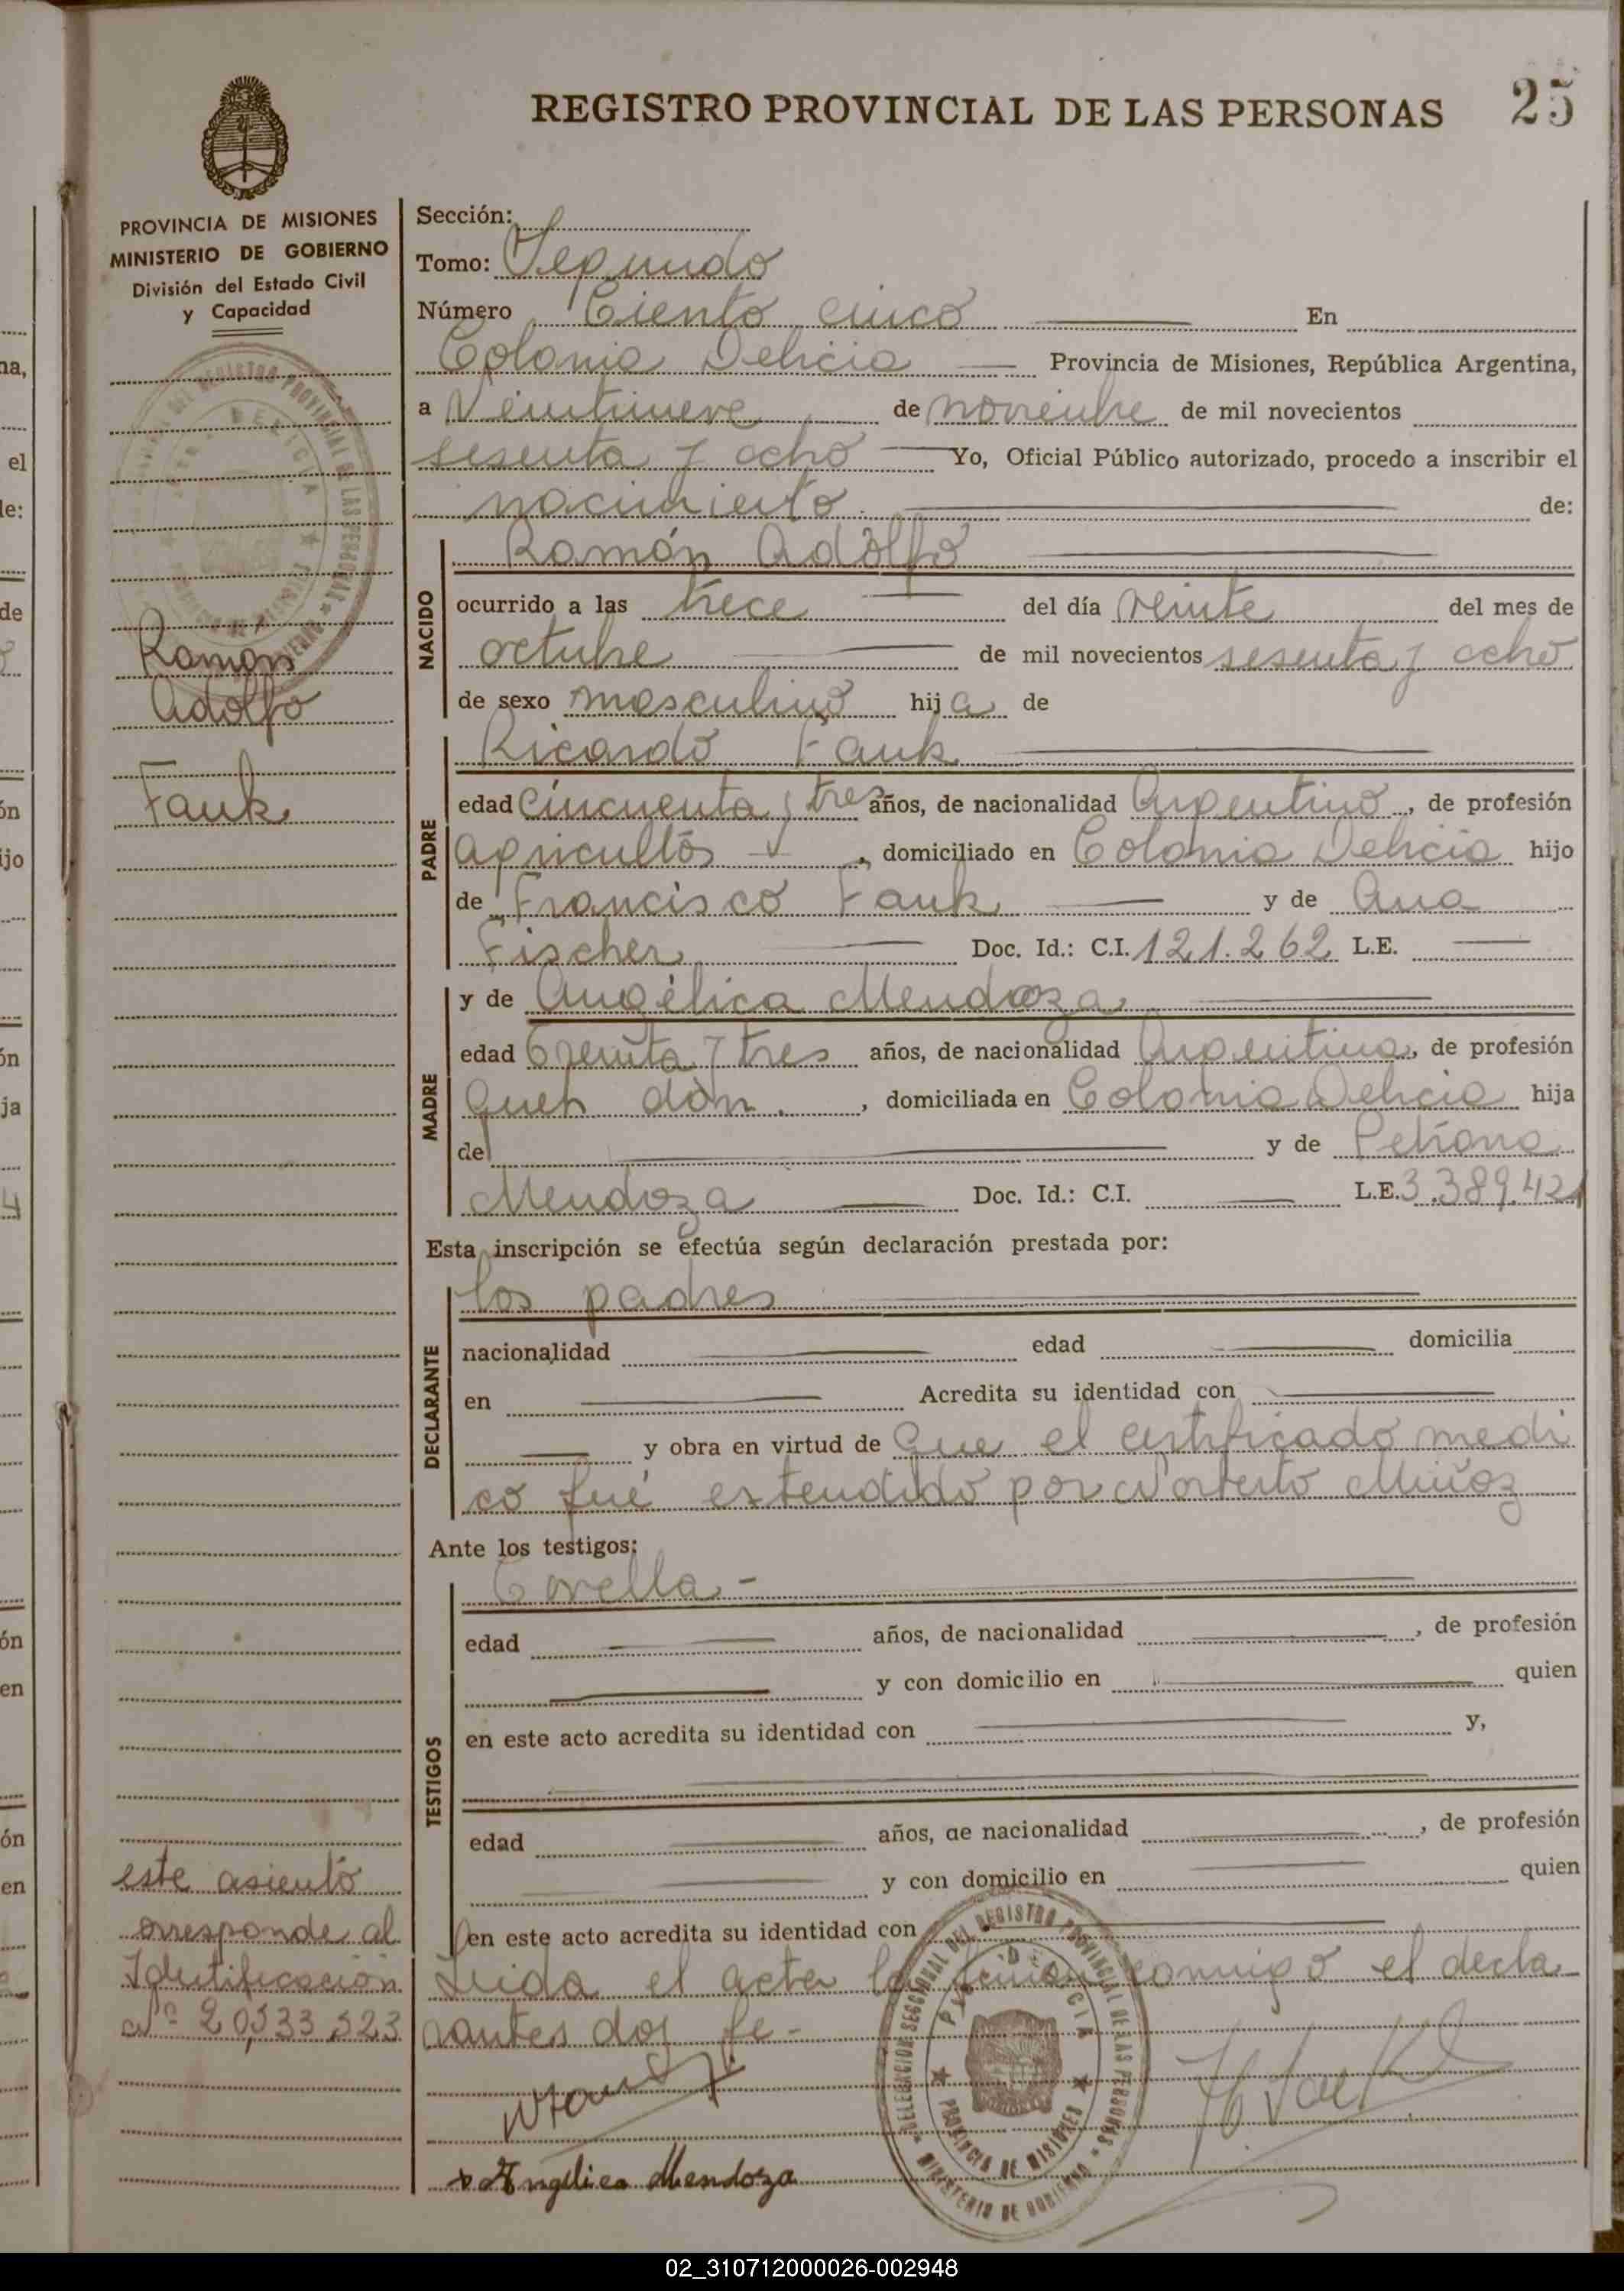 REGISTRO PROVINCIAL DE LAS PERSONAS 25
PROVINCIA DE MISIONES
MINISTERIO DE GOBIERNO
División del Estado Civil
y Capacidad
Ramón
Adolfo
Fauk
este asiento
corresponde al
Identificación
Nº 20,533,523
Sección:
Tomo: Segundo
Número Ciento cinco En
Colonia Delicia Provincia de Misiones, República Argentina,
a Veintinueve de noviembre de mil novecientos
sesenta y ocho Yo, Oficial Público autorizado, procedo a inscribir el
nacimiento de:
NACIDO
Ramón Adolfo
ocurrido a las trece del día veinte del mes de
octubre de mil novecientos sesenta y ocho
de sexo masculino hija de
PADRE
Ricardo Fauk
edad Cincuenta y tres años, de nacionalidad Argentino, de profesión
agricultor, domiciliado en Colonia Delicia hijo
de Francisco Fauk y de Ana
Fischer Doc. Id.: C.I. 121.262 L.E.
MADRE
y de Angélica Mendoza
edad treinta y tres años, de nacionalidad Argentina, de profesión
, domiciliada en Colonia Delicia hija
de y de Petrona
Mendoza Doc. Id.: C.I. L.E. 3.389.421
Esta inscripción se efectúa según declaración prestada por:
DECLARANTE
los padres
nacionalidad edad domicilia
en Acredita su identidad con
y obra en virtud de que el certificado medi
co fué extendido por Norberto Muñoz
Ante los testigos:
TESTIGOS
Corella -
edad años, de nacionalidad , de profesión
y con domicilio en quien
en este acto acredita su identidad con y,
edad años, de nacionalidad , de profesión
y con domicilio en quien
en este acto acredita su identidad con
Leida el acta la firman conmigo el decla
rantes doy fe -
Angélica Mendoza
DELEGACION SECCIONAL DEL REGISTRO PROVINCIAL DE LAS PERSONAS
PROVINCIA DE MISIONES
MINISTERIO DE GOBIERNO
02_310712000026-002948